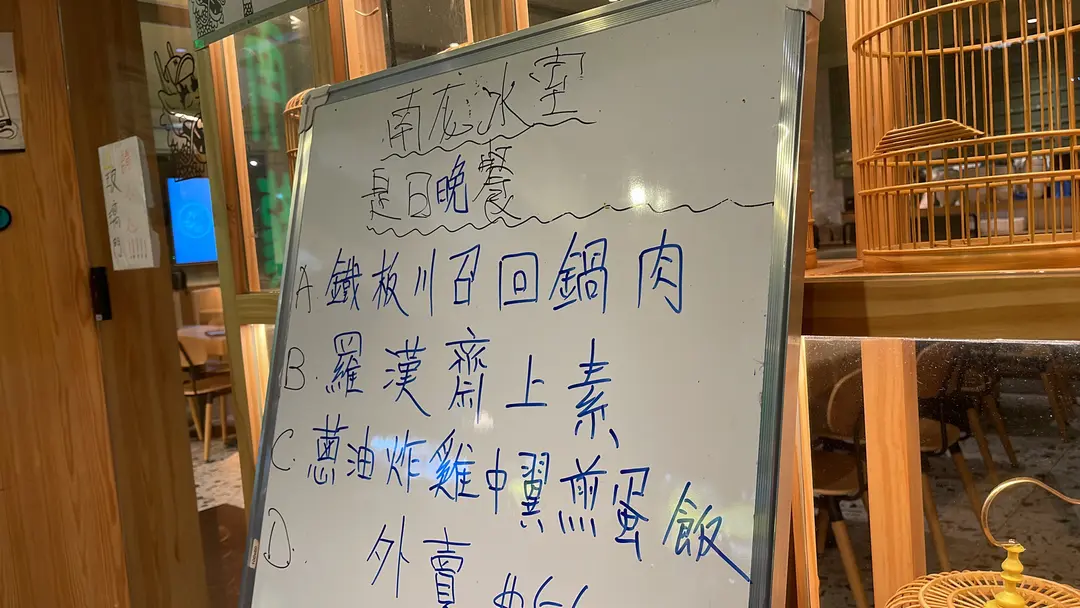 南応冰室
是日晚餐
A. 鐵板川召回鍋肉
B. 羅漢齋上素
C. 蔥油炸雞中翼煎蛋飯
D.
外賣